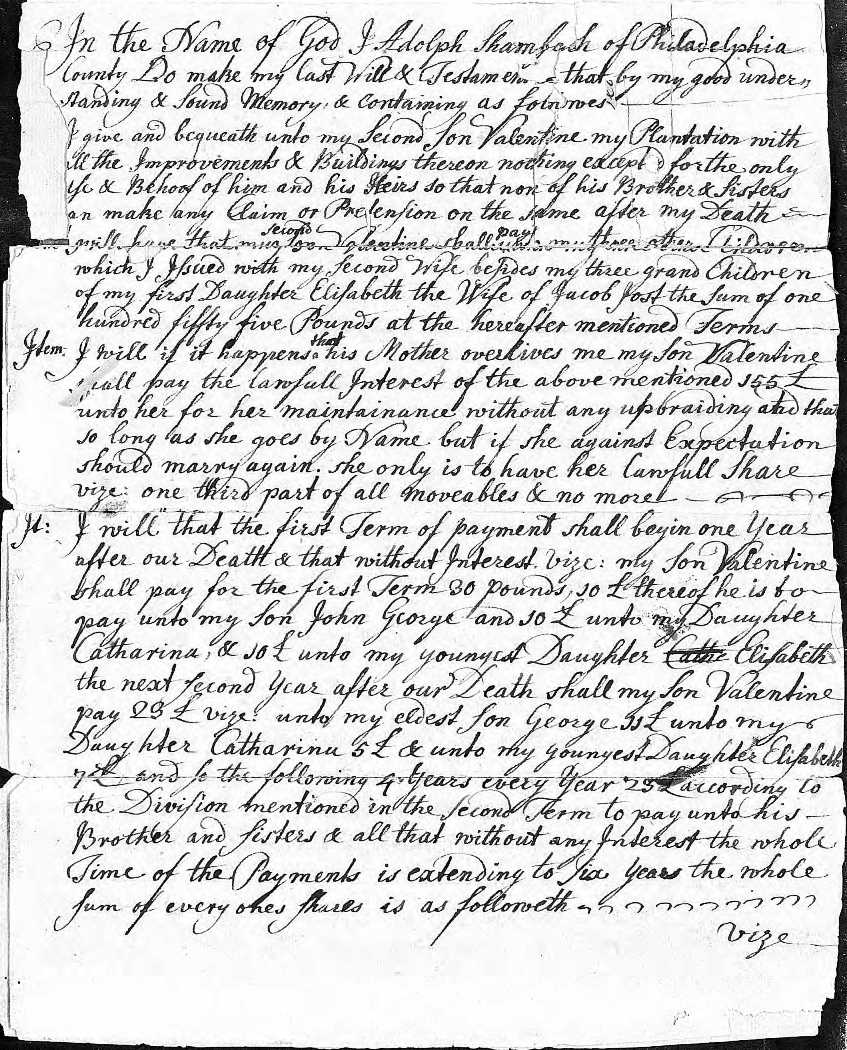 In the Name of God I Adolph Shambach of Philadelphia
County Do make my Last Will & Testament that by my good under
standing & Sound Memory, & Containing as follows
I give and bequeath unto my Second Son Valentine my Plantation with
all the Improvements & Buildings thereon nothing except'd for the only
use & Behoof of him and his Heirs so that non of his Brother & Sisters
can make any Claim or Pretension on the same after my Death
I will have that my second son Valentine shall pay my three other Children
which I Issued with my Second Wife besides my three grand Children
of my first Daughter Elisabeth the Wife of Jacob Jost the Sum of one
hundred fifty five Pounds at the hereafter mentioned Terms
Item. I will if it happens that his Mother overlives me my Son Valentine
shall pay the lawfull Interest of the above mentioned 155 £
unto her for her maintainance without any upbraiding and that
so long as she goes by Name but if she against Expectation
should marry again. she only is to have her lawfull Share
vize: one third part of all moveables & no more
It: I will that the first Term of payment shall begin one Year
after our Death & that without Interest vize: my Son Valentine
shall pay for the first Term 30 pounds, 10 £ thereof he is to
pay unto my Son John George and 10 £ unto my Daughter
Catharina, & 10 £ unto my youngest Daughter Cathe Elisabeth
the next second Year after our Death shall my Son Valentine
pay 23 £ vize: unto my eldest Son George 11 £ unto my
Daughter Catharina 5 £ & unto my youngest Daughter Elisabeth
7 £ and so the following 4 Years every Year 23 £ according to
the Division mentioned in the Second Term to pay unto his
Brother and Sisters & all that without any Interest the whole
Time of the Payments is extending to Six Years the whole
Sum of every ones Shares is as followeth
vize